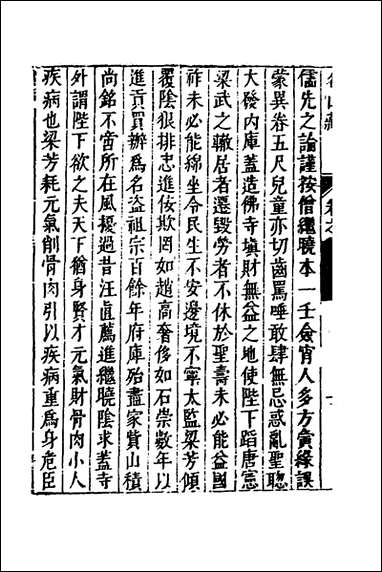 儒先之論謹按僧繼曉本一壬僉宵人多方夤緣誤
蒙異眷五尺兒童亦切齒罵唾敢肆無忌惑亂聖聰
大發内庫蓋造佛寺塡財無益之地使陛下蹈唐憲
梁武之轍居者遷毀勞者不休於聖壽未必能益國
祚未必能綿坐令民生不安邊境不寧太監梁芳傾
覆陰狠排忠進佞欺罔如趙高奢侈如石崇數年以
進貢買辦爲名盜祖宗百餘年府庫殆盡家貲山積
尚銘不啻所在風擾過昔汪直薦進繼曉陰求蓋寺
外謂陛下欲之夫天下猶身賢才元氣財骨肉小人
疾病也梁芳耗元氣削骨肉引以疾病重爲身危臣